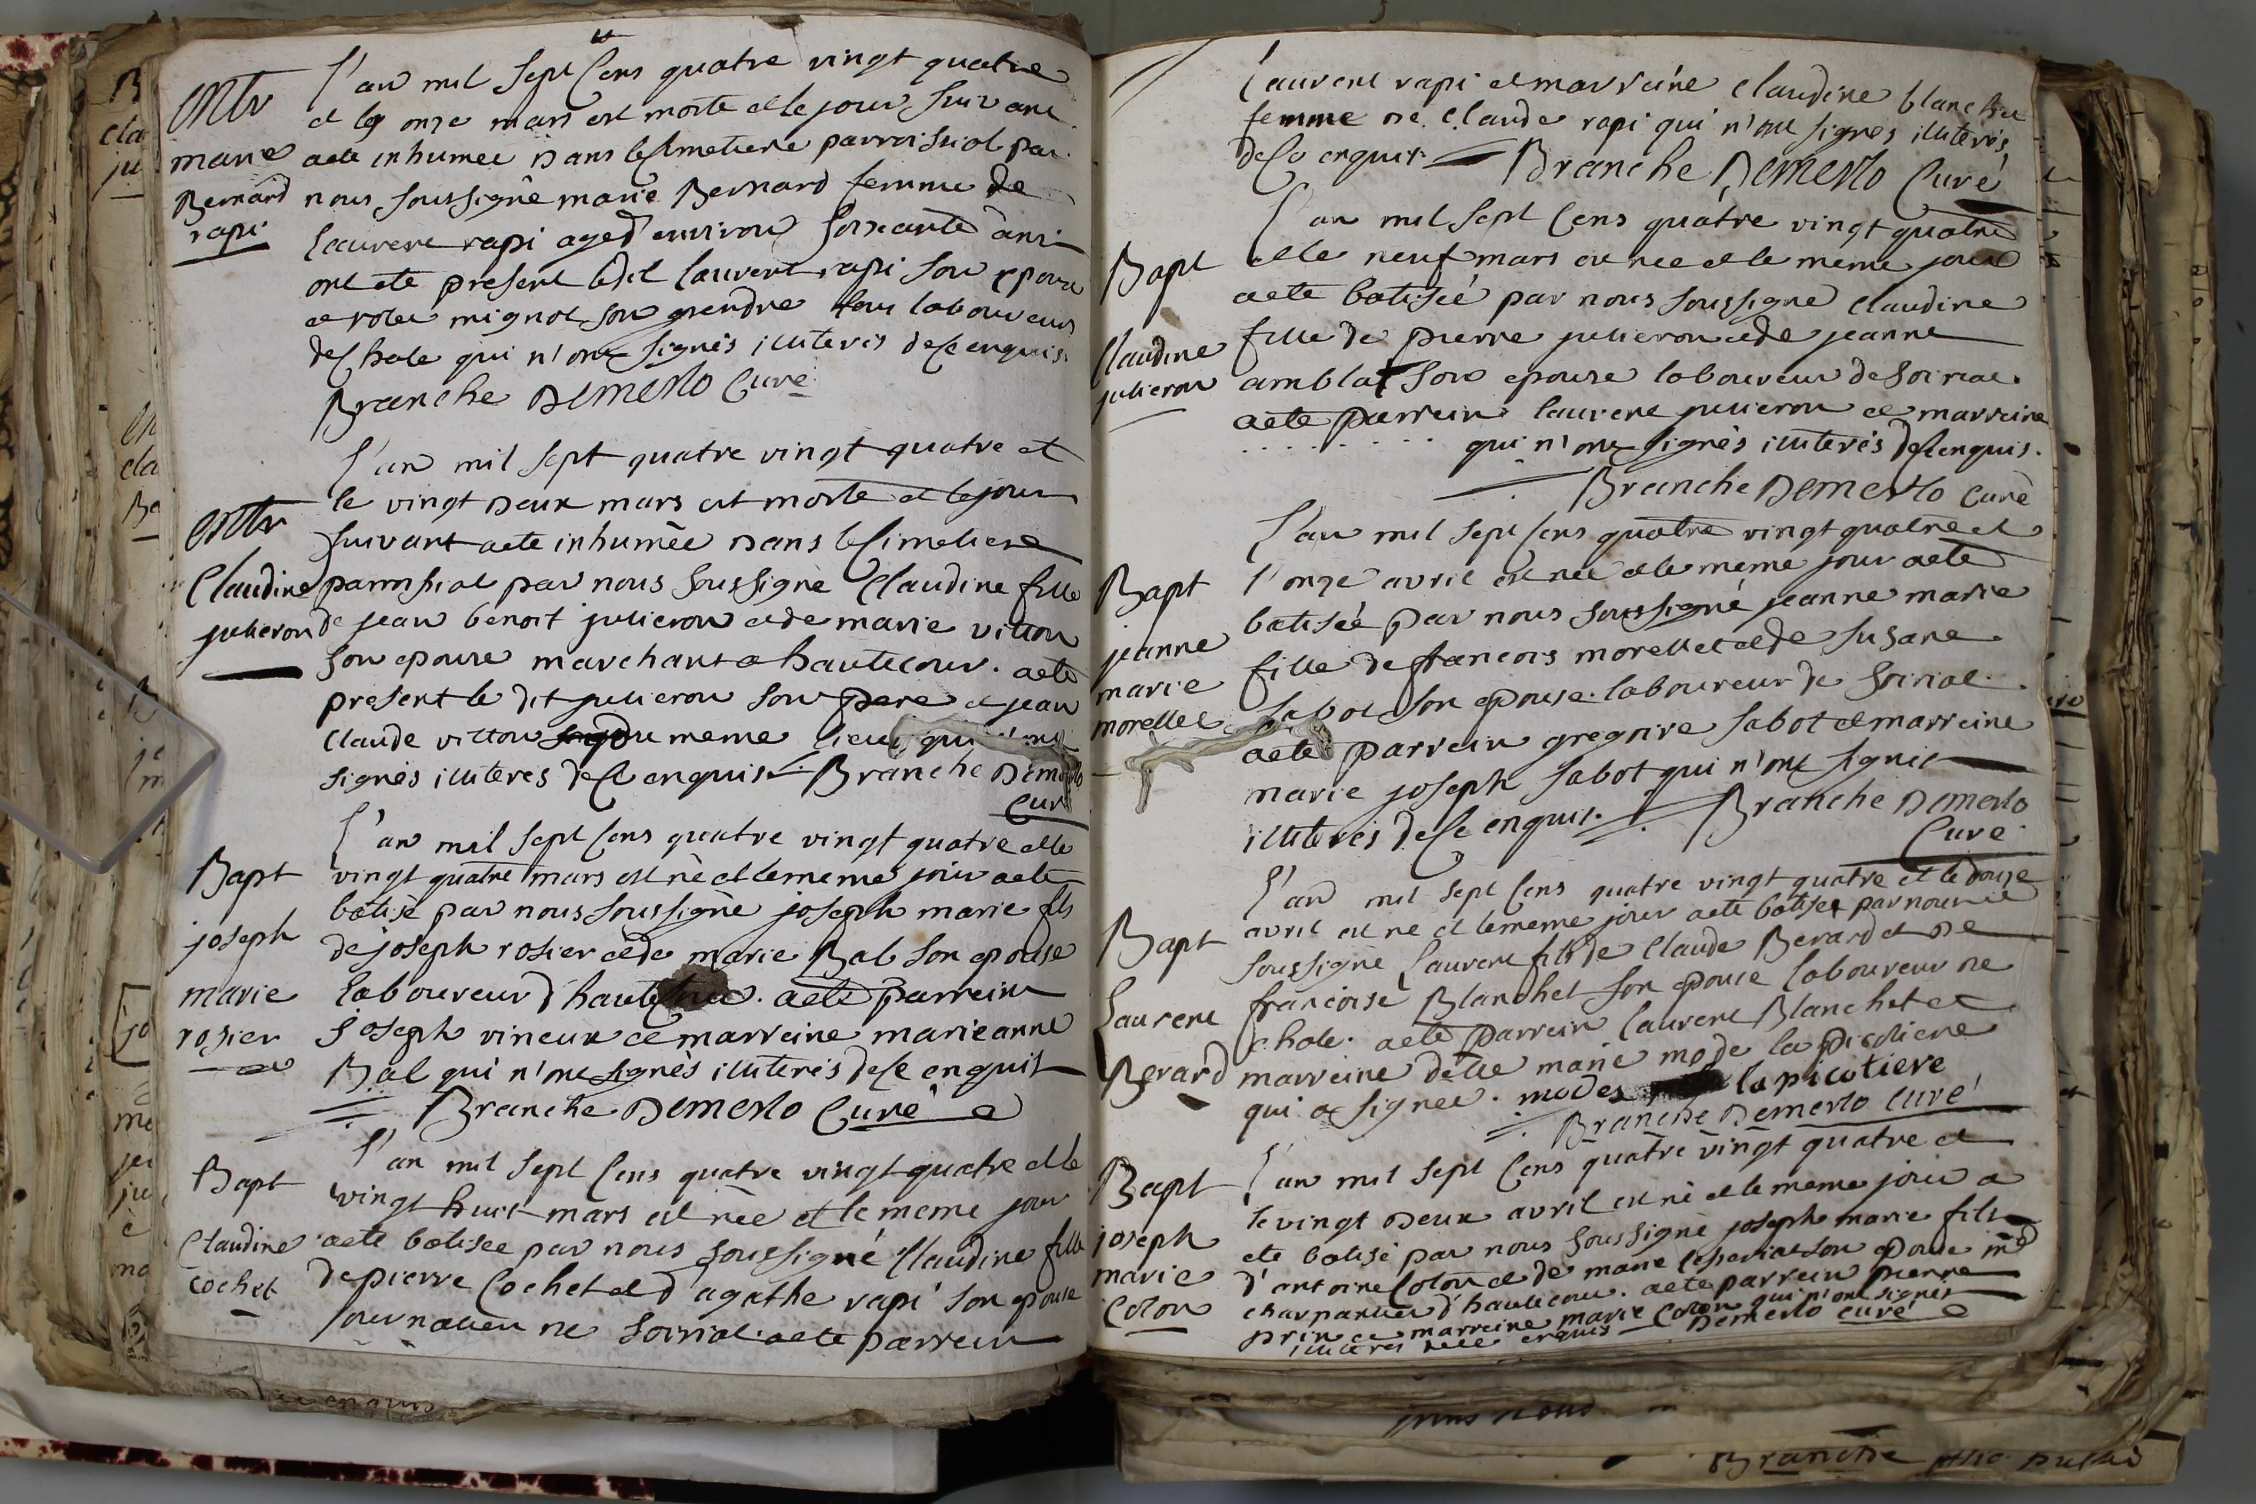 mtr
marie
Bernard
rapi
l'an mil sept Cens quatre vingt quatre
et le onze mars est morte et le jour suivant
aete inhumée dans le Cimetiere parroissial par
nous soussigné marie Bernard femme de
laurent rapi agée d'environ soixante ans
ont ete present ledit laurent rapi son epoux
et mignot son gendre tous laboureurs
de Chole qui n'ont signés illiterés de Ce enquis.
Branche Demerlo Curé
mtr
Claudine
julieron
l'an mil sept quatre vingt quatre et
le vingt deux mars est morte et le jour
suivant aete inhumée dans le Cimetiere
parroissial par nous soussigné Claudine fille
de jean benoit julieron et de marie vitton
son epouse marchant a hautecour. aete
present le dit julieron son pere et jean
Claude vitton du meme lieu, qui n'ont
signés illiteres de Ce enquis. Branche Demerlo
Curé
Bapt
joseph
marie
rosier
l'an mil sept Cens quatre vingt quatre et le
vingt quatre mars est né et le meme jour aete
batisé par nous soussigné joseph marie fils
de joseph rosier et de marie Bal son epouse
laboureur d'hautecour. aete parrein
joseph vineux et marreine marie anne
Bal qui n'ont signés illiterés de Ce enquis
Branche Demerlo Curé
Bapt
Claudine
Cochet
l'an mil sept Cens quatre vingt quatre et le
vingt huit mars est née et le meme jour
aete batisee par nous soussigné Claudine fille
de pierre Cochet et d'agathe rapi son epouse
journalier de soiriat. aete parrein
laurent rapi et marreine claudine blanchet
femme de Claude rapi qui n'ont signés illiterés
de Ce enquis. Branche Demerlo Curé
Bapt
Claudine
julieron
l'an mil sept Cens quatre vingt quatre
et le neuf mars est née et le meme jour
aete batisée par nous soussigné Claudine
fille de pierre julieron et de jeanne
amblat son epouse laboureur de soiriat.
aete parrein laurent julieron et marreine
. . . . . . . . qui n'ont signés illiterés de Ce enquis.
Branche Demerlo Curé
Bapt
jeanne
marie
morellet
l'an mil sept Cens quatre vingt quatre et
l'onze avril est née et le meme jour aete
batisée par nous soussigné jeanne marie
fille de francois morellet et de susane
sabot son epouse. laboureur de soiriat.
aete parrein gregoire sabot et marreine
marie joseph sabot qui n'ont signés
illiterés de Ce enquis. Branche Demerlo
Curé
Bapt
Laurent
Berard
l'an mil sept Cens quatre vingt quatre et le douze
avril est né et le meme jour aete batisé par nous
soussigné Laurent fils de Claude Berard et de
francoise Blanchet son epouse laboureur de
chole. aete parrein laurent Blanchet et
marreine delle marie mode la picotiere
qui a signee. modes la picotiere
Branche Demerlo Curé
Bapt
joseph
marie
Colon
l'an mil sept Cens quatre vingt quatre et
le vingt deux avril est né et le meme jour a
ete batisé par nous soussigné joseph marie fils
d'antoine Colon et de marie son epouse md
charpantier d'hautecour. aete parrein pierre
prin et marreine marie Colon qui n'ont signés
illiteres de Ce enquis Demerlo Curé